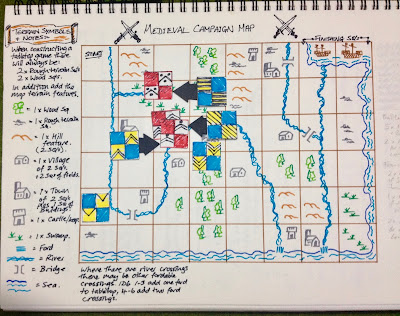 MEDIEVAL CAMPAIGN MAP
TERRAIN SYMBOLS
+ NOTES
When constructing a
tabletop game there
will always be:
2 x Rough terrain Sq's
2 x Wood sq's.
In addition add the
map terrain features.
= 1 x Wood Sq
= 1 x Rough terrain
Sq.
= 1 x Hill
feature.
(2 sq's)
= 1 x Village
of 2 sq's.
+ 2 Sq of fields.
= 1 x Town
of 2 sq's
Buildings
= 1 x Castle/keep.
= 1 x Swamp.
= Ford
= River
= Bridge
= Sea.
START
FINISHING SQ'S
Where there are river crossings
there may be other fordable
crossings. 1D6 1-3 add one ford
to tabletop, 4-6 add two ford
crossings.